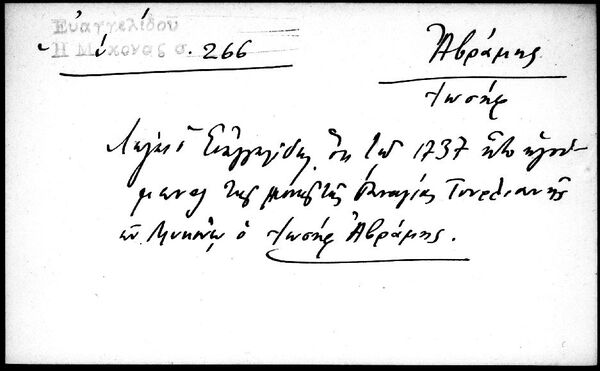 Εὐαγγελίδου
Ἡ Μύκονος σ. 266
Ἀβράμης
Ἰωσήφ
Λέγει ὁ Εὐαγγελίδης ὅτι τῷ 1737 ἦτο ἡγού-
μενος τῆς μονῆς τῆς Παναγίας Τουρλιανῆς
ἐν Μυκόνῳ ὁ Ἰωσήφ Ἀβράμης.